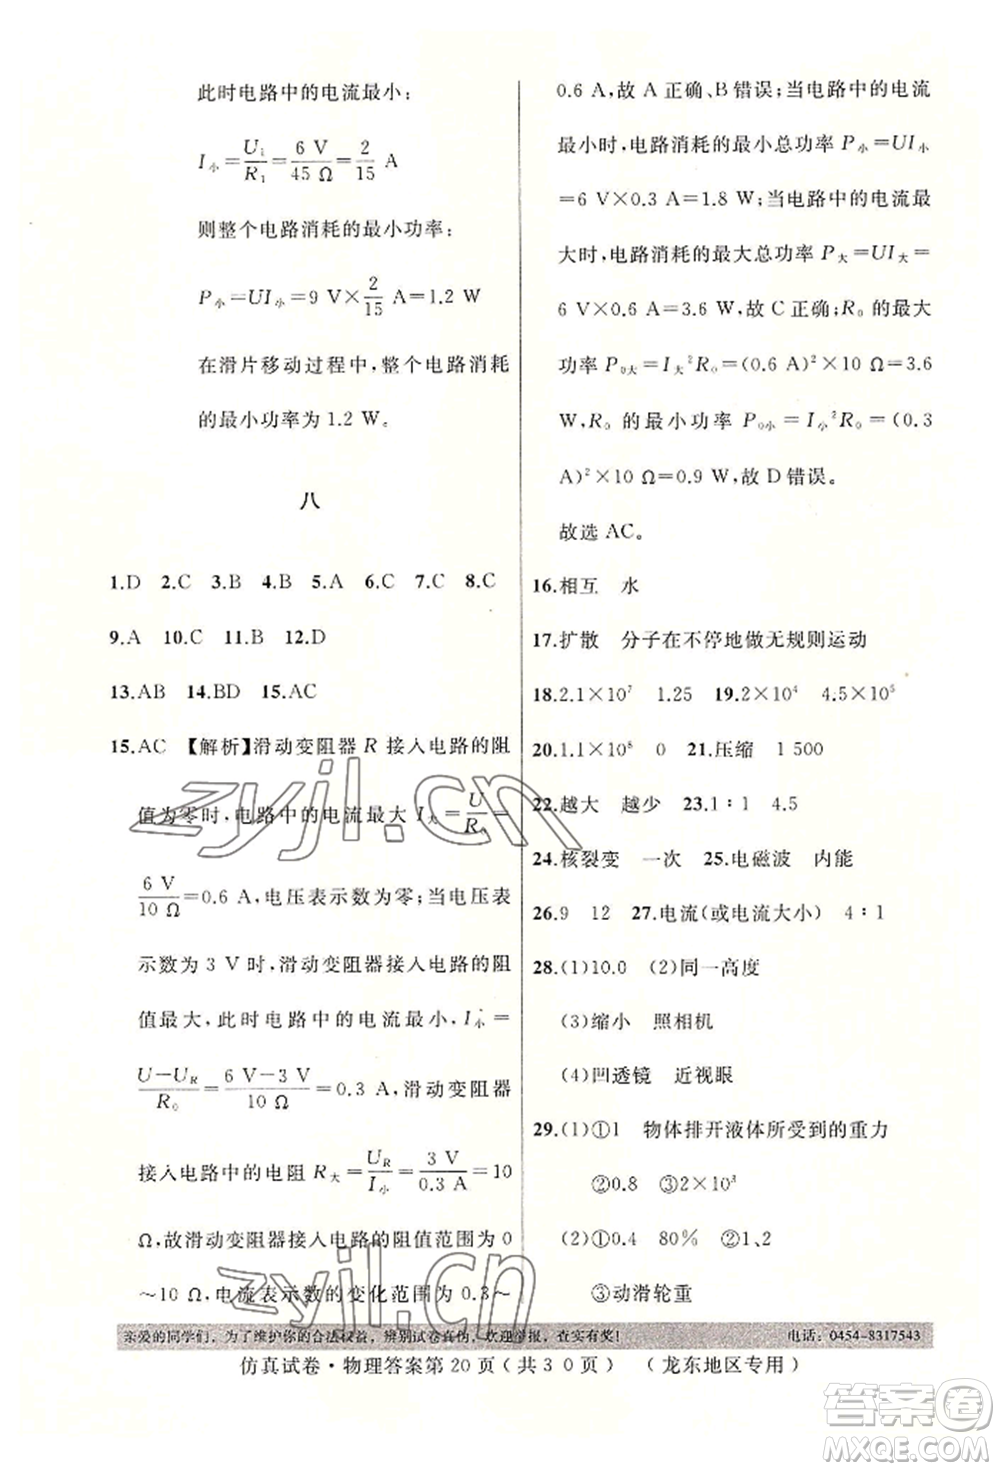 此时电路中的电流最小：
I小=U₁/R₁=6 V/45 Ω=2/15 A
则整个电路消耗的最小功率：
P小=UI小=9 V×2/15 A=1.2 W
在滑片移动过程中，整个电路消耗
的最小功率为 1.2 W。
八
1.D 2.C 3.B 4.B 5.A 6.C 7.C 8.C
9.A 10.C 11.B 12.D
13.AB 14.BD 15.AC
15.AC 【解析】滑动变阻器 R 接入电路的阻
值为零时，电路中的电流最大 I大=U/R₀=
6 V/10 Ω=0.6 A，电压表示数为零；当电压表
示数为 3 V 时，滑动变阻器接入电路的阻
值最大，此时电路中的电流最小，I小=
U-U_R/R₀=6 V-3 V/10 Ω=0.3 A，滑动变阻器
接入电路中的电阻 R大=U_R/I小=3 V/0.3 A=10
Ω，故滑动变阻器接入电路的阻值范围为 0
～10 Ω，电流表示数的变化范围为 0.3～
0.6 A，故 A 正确、B 错误；当电路中的电流
最小时，电路消耗的最小总功率 P小=UI小
=6 V×0.3 A=1.8 W；当电路中的电流最
大时，电路消耗的最大总功率 P大=UI大=
6 V×0.6 A=3.6 W，故 C 正确；R₀ 的最大
功率 P₀大=I大²R₀=(0.6 A)²×10 Ω=3.6
W，R₀ 的最小功率 P₀小=I小²R₀=(0.3
A)²×10 Ω=0.9 W，故 D 错误。
故选 AC。
16.相互 水
17.扩散 分子在不停地做无规则运动
18.2.1×10⁷ 1.25 19.2×10⁴ 4.5×10⁵
20.1.1×10⁸ 0 21.压缩 1 500
22.越大 越少 23.1∶1 4.5
24.核裂变 一次 25.电磁波 内能
26.9 12 27.电流(或电流大小) 4∶1
28.(1)10.0 (2)同一高度
(3)缩小 照相机
(4)凹透镜 近视眼
29.(1)①1 物体排开液体所受到的重力
②0.8 ③2×10³
(2)①0.4 80% ②1、2
③动滑轮重
亲爱的同学们，为了维护你的合法权益，辨别试卷真伪，欢迎举报，查实有奖！ 电话：0454-8317543
仿真试卷·物理答案第20页(共30页) (龙东地区专用)
zyjl.cn
zyjl.cn
答案卷
MXQE.COM